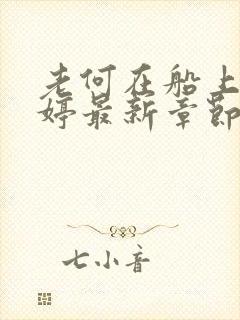 老何在船上
婷最新章节
七小音